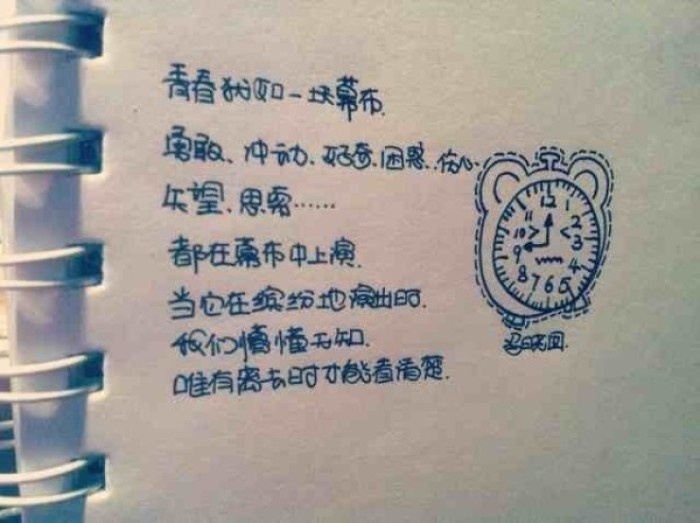 青春犹如一块幕布.
勇敢、冲动、好奇、困惑、伤心.
失望、思索……
都在幕布中上演.
当它在缤纷地演出时.
我们懵懂无知.
唯有离去时才能看清楚.
12
11 1
10 2
9 3
8 4
7 6 5